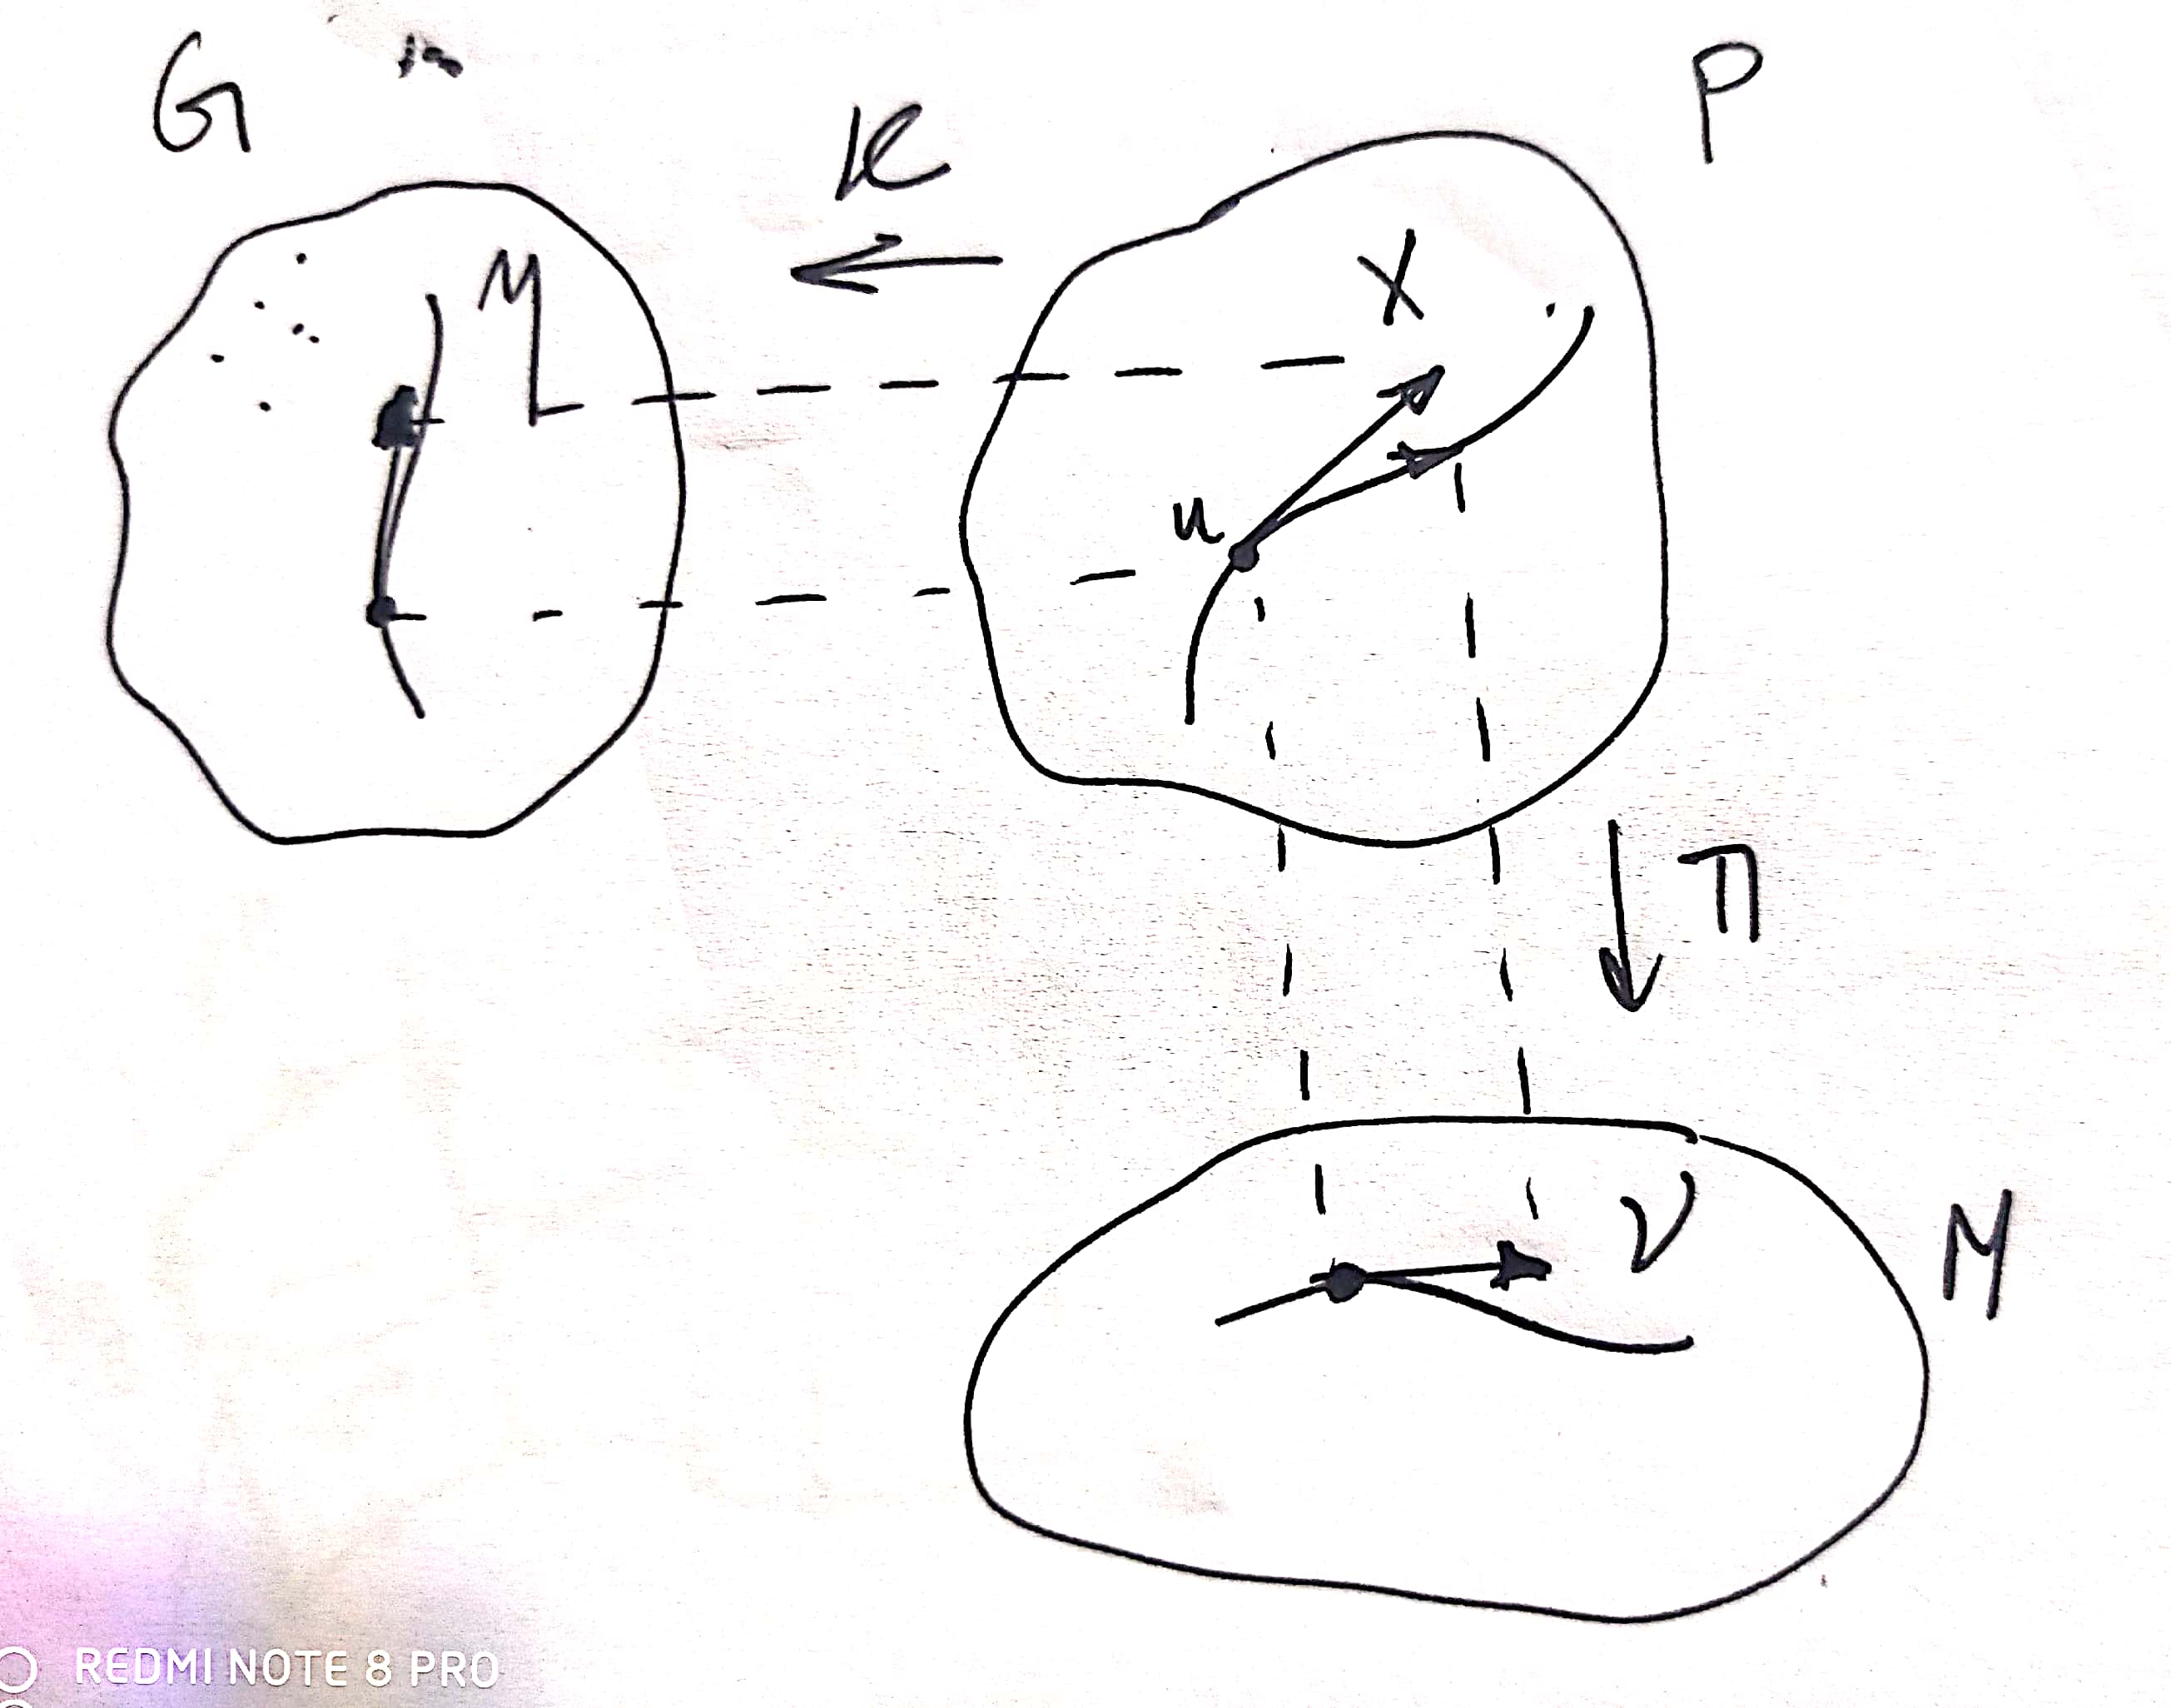 G
P
κ
X
η
u
π
ν
M
REDMI NOTE 8 PRO